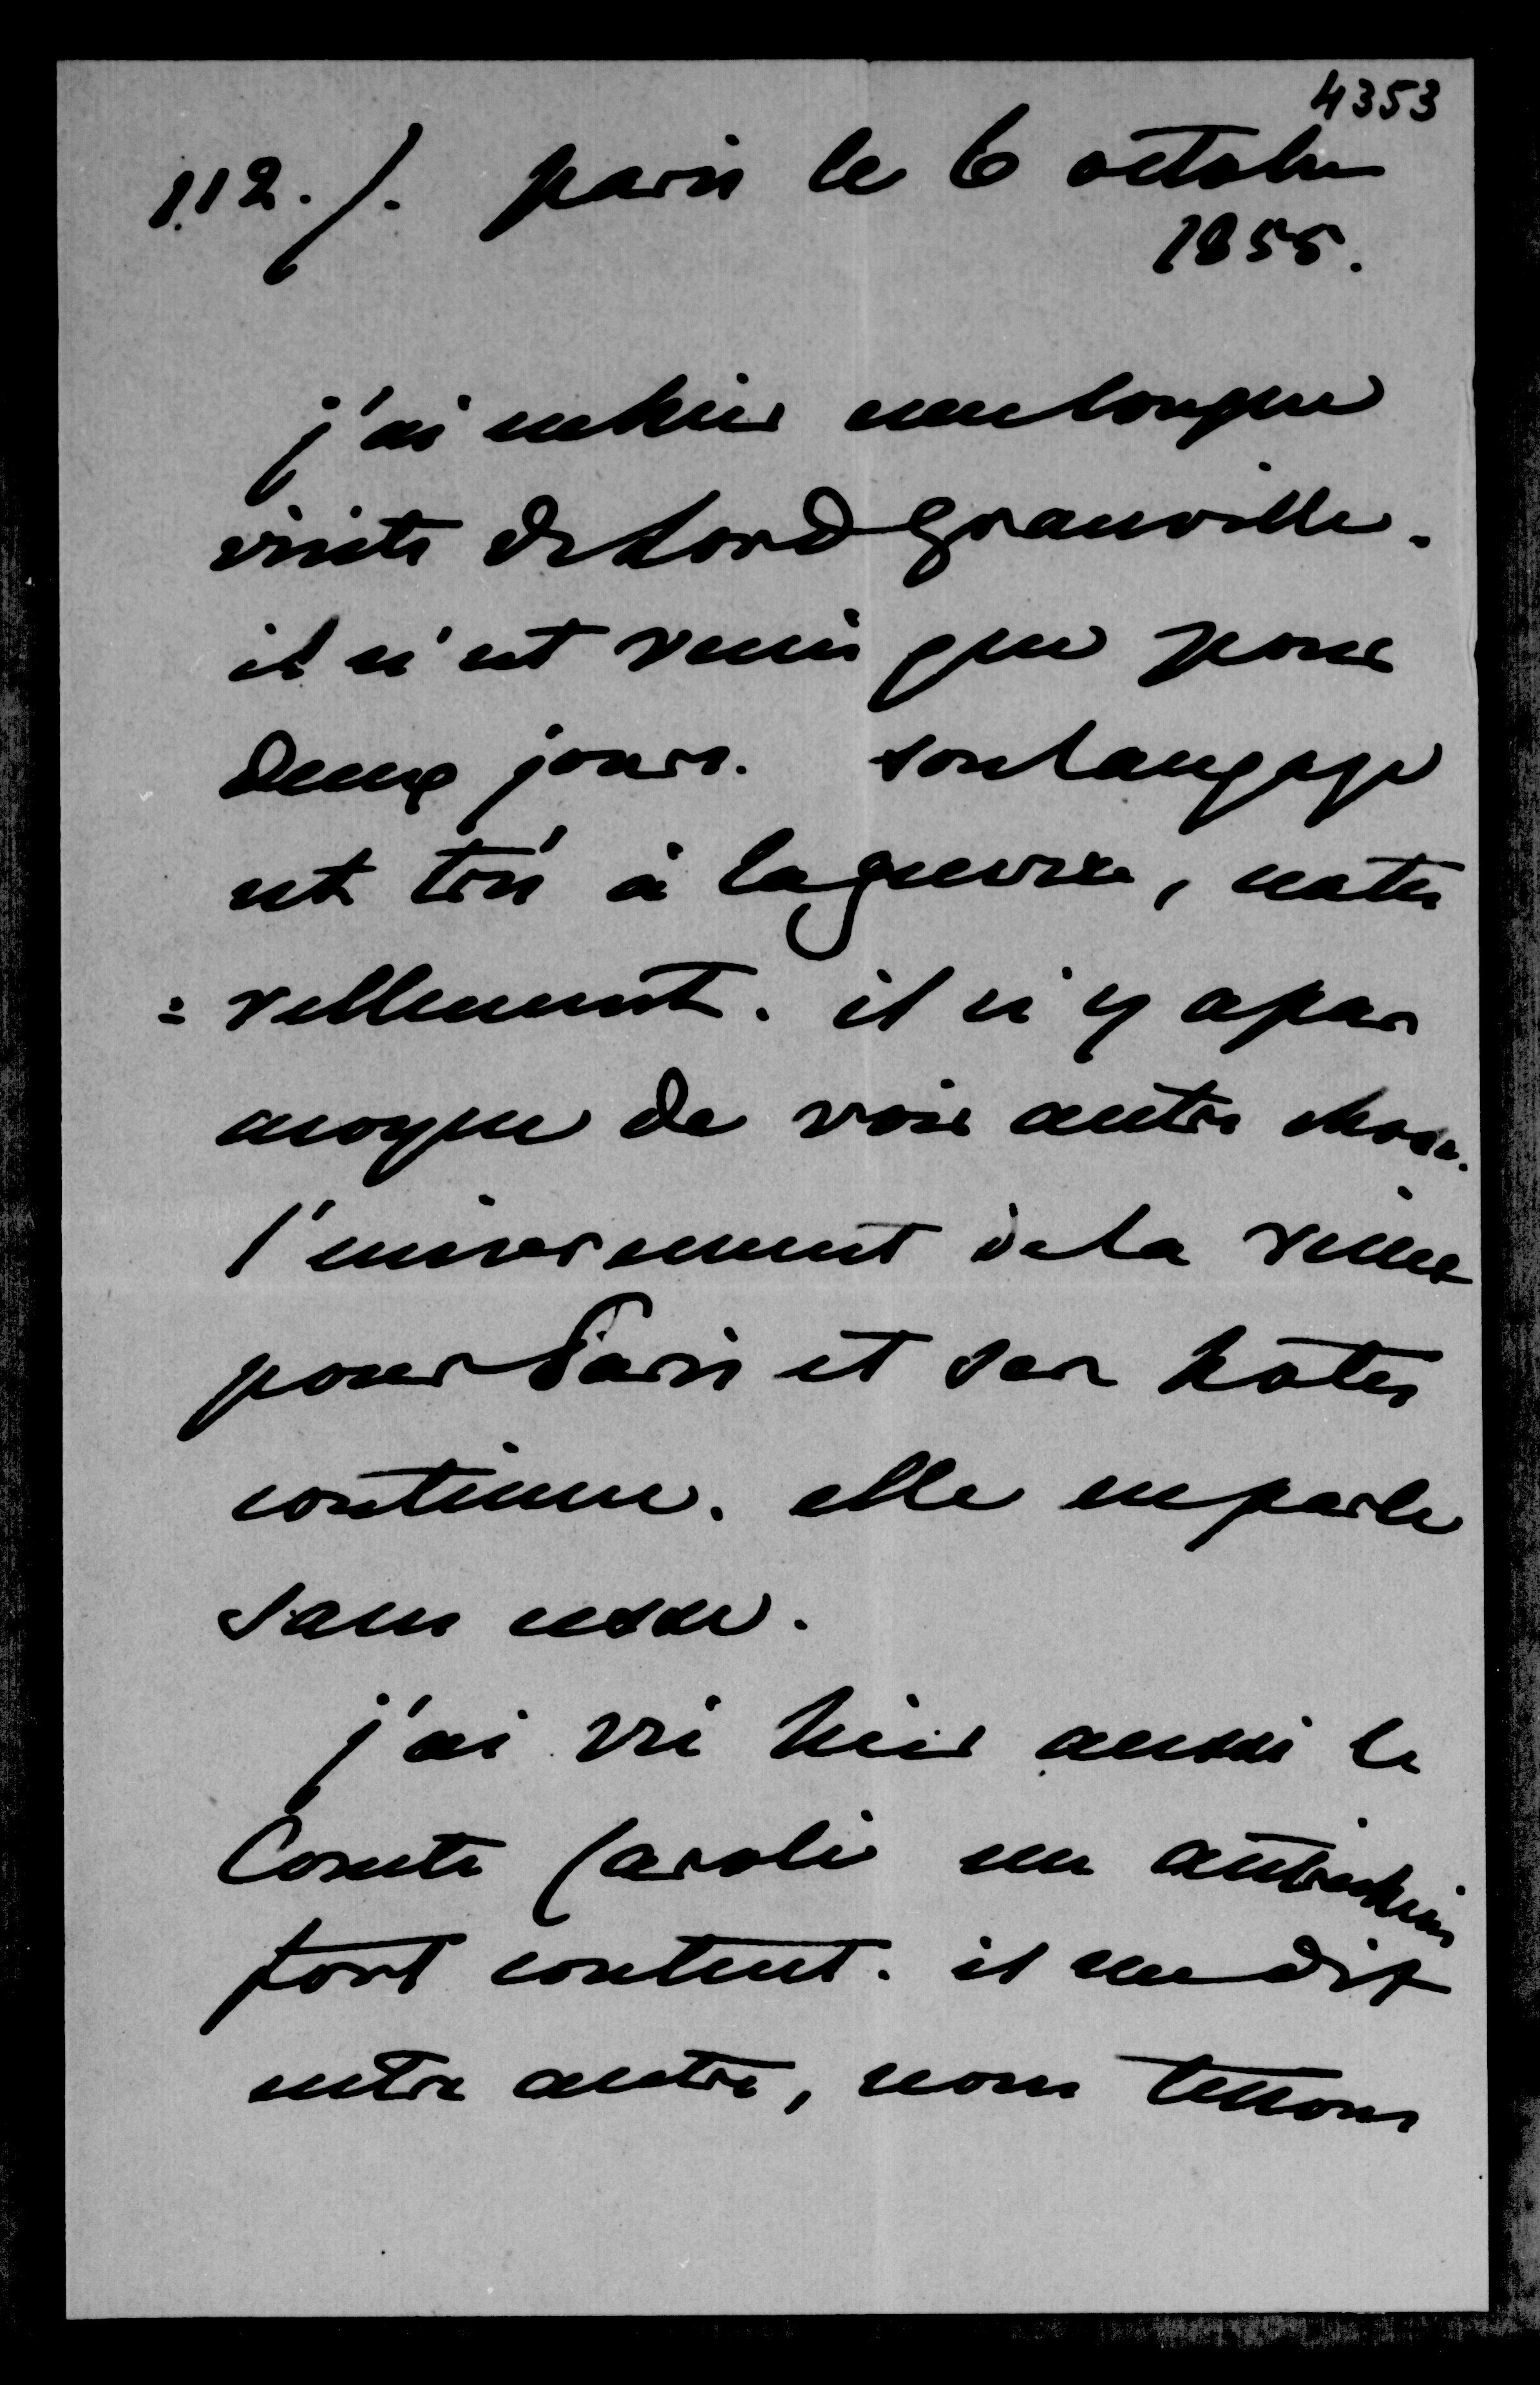 4353
112./. paris le 6 octobre
1855.
j'ai eu hier une longue
visite de Lord Granville.
il n'est venu que pour
deux jours. son langage
est très à la guerre, natu
=rellement. il n'y a pas
moyen de voir autre chose.
l'enivrement de la reine
pour Paris et ses hôtes
continue. elle en parle
sans cesse.
j'ai vu hier aussi le
Comte Caroli un autrichien
fort content. il me dit
entre autre, nous tenons